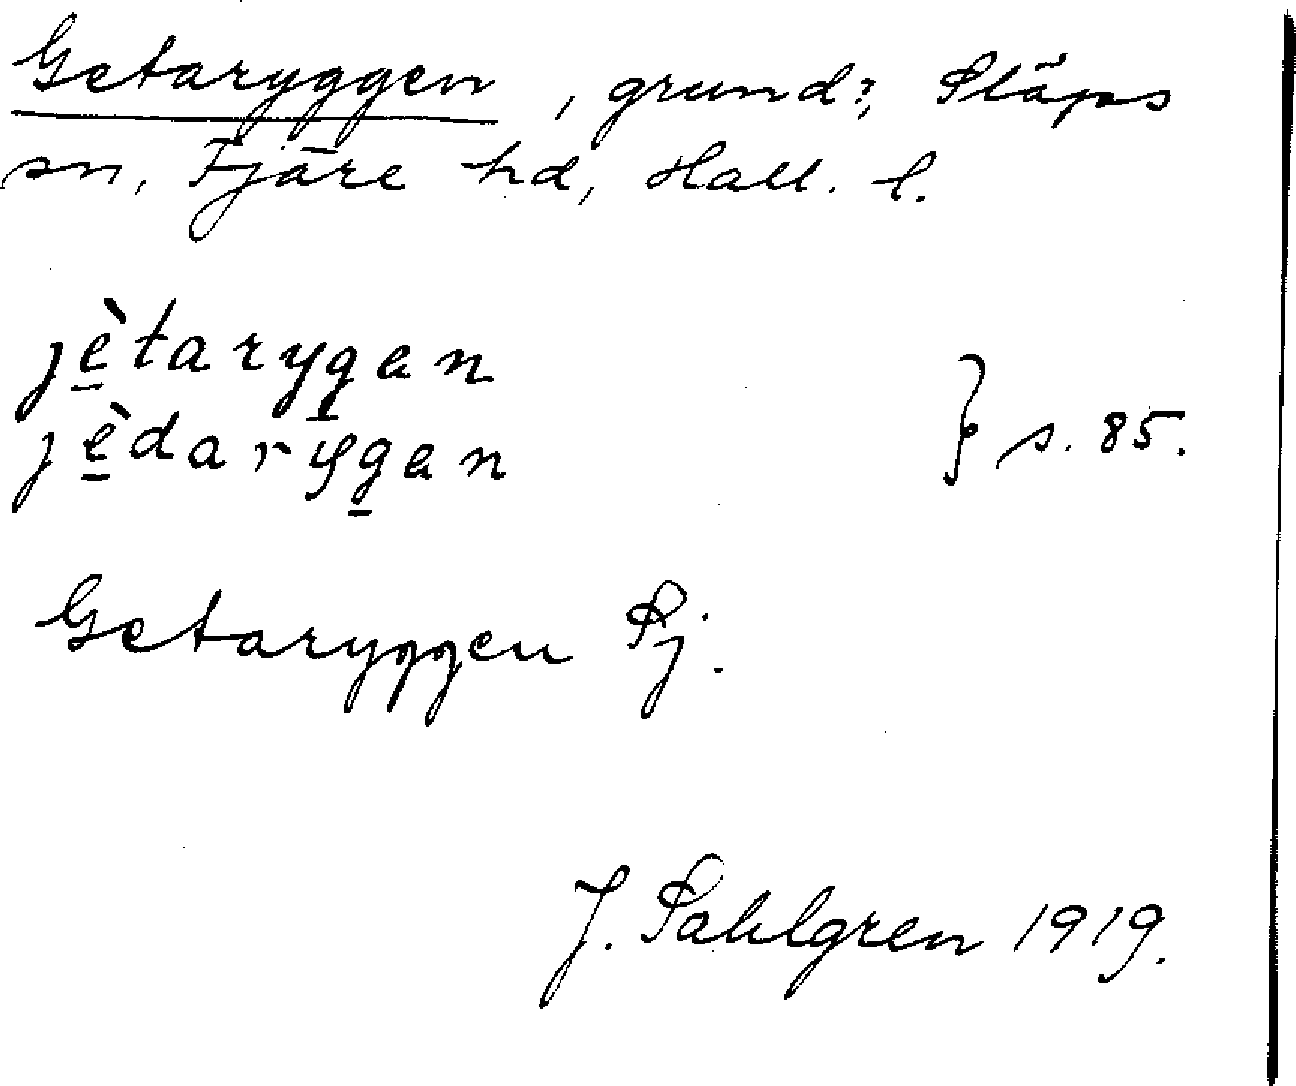 Getaryggen, grund?, Släps
sn, Fjäre hd, Hall. l.
jètarygen
jèdarygen } s. 85.
Getaryggen Sj.
J. Sahlgren 1919.